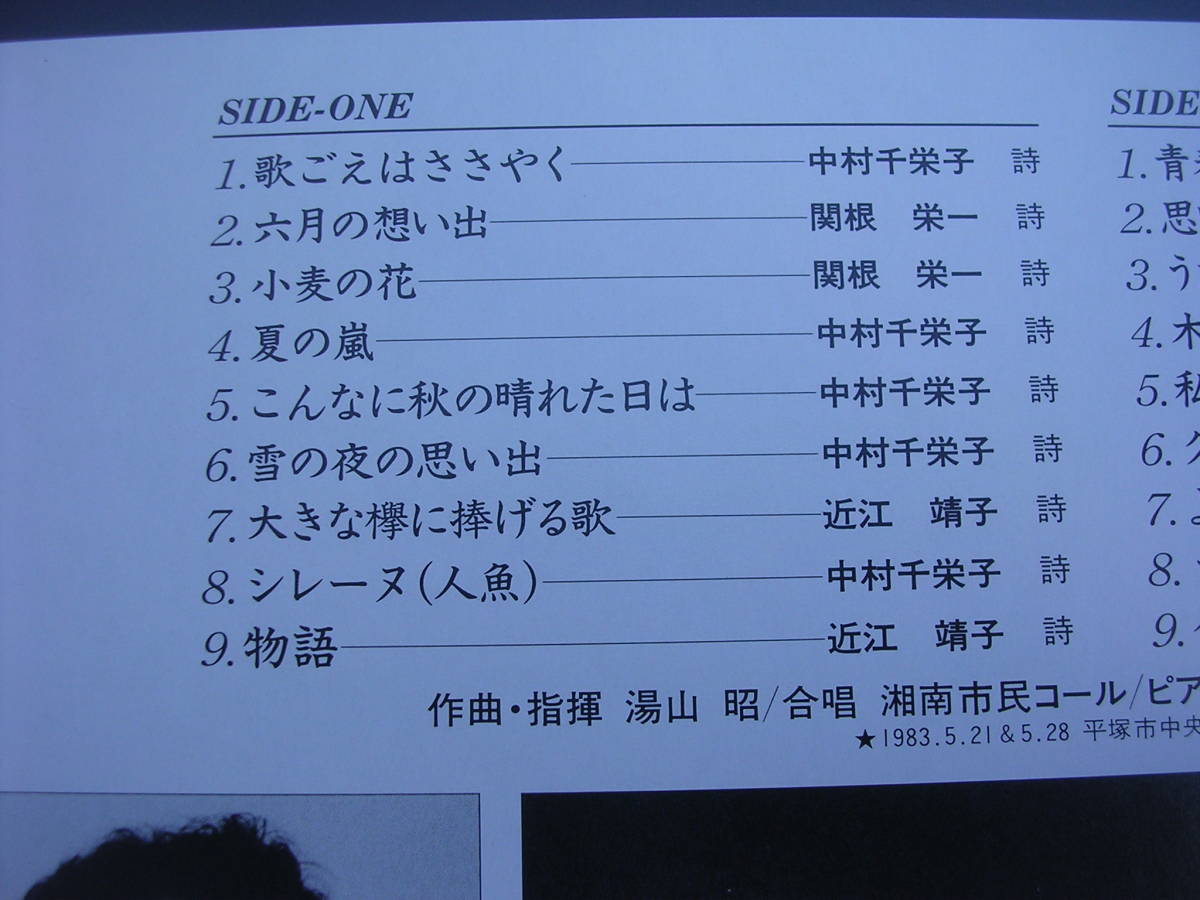 SIDE-ONE
1. 歌ごえはささやく 中村千栄子 詩
2. 六月の想い出 関根 栄一 詩
3. 小麦の花 関根 栄一 詩
4. 夏の嵐 中村千栄子 詩
5. こんなに秋の晴れた日は 中村千栄子 詩
6. 雪の夜の思い出 中村千栄子 詩
7. 大きな欅に捧げる歌 近江 靖子 詩
8. シレーヌ(人魚) 中村千栄子 詩
9. 物語 近江 靖子 詩
作曲・指揮 湯山 昭/合唱 湘南市民コール/ピア
★1983.5.21&5.28 平塚市中央
SIDE
1. 青
2. 思
3. う
4. 木
5. 私
6.
7.
8.
9.